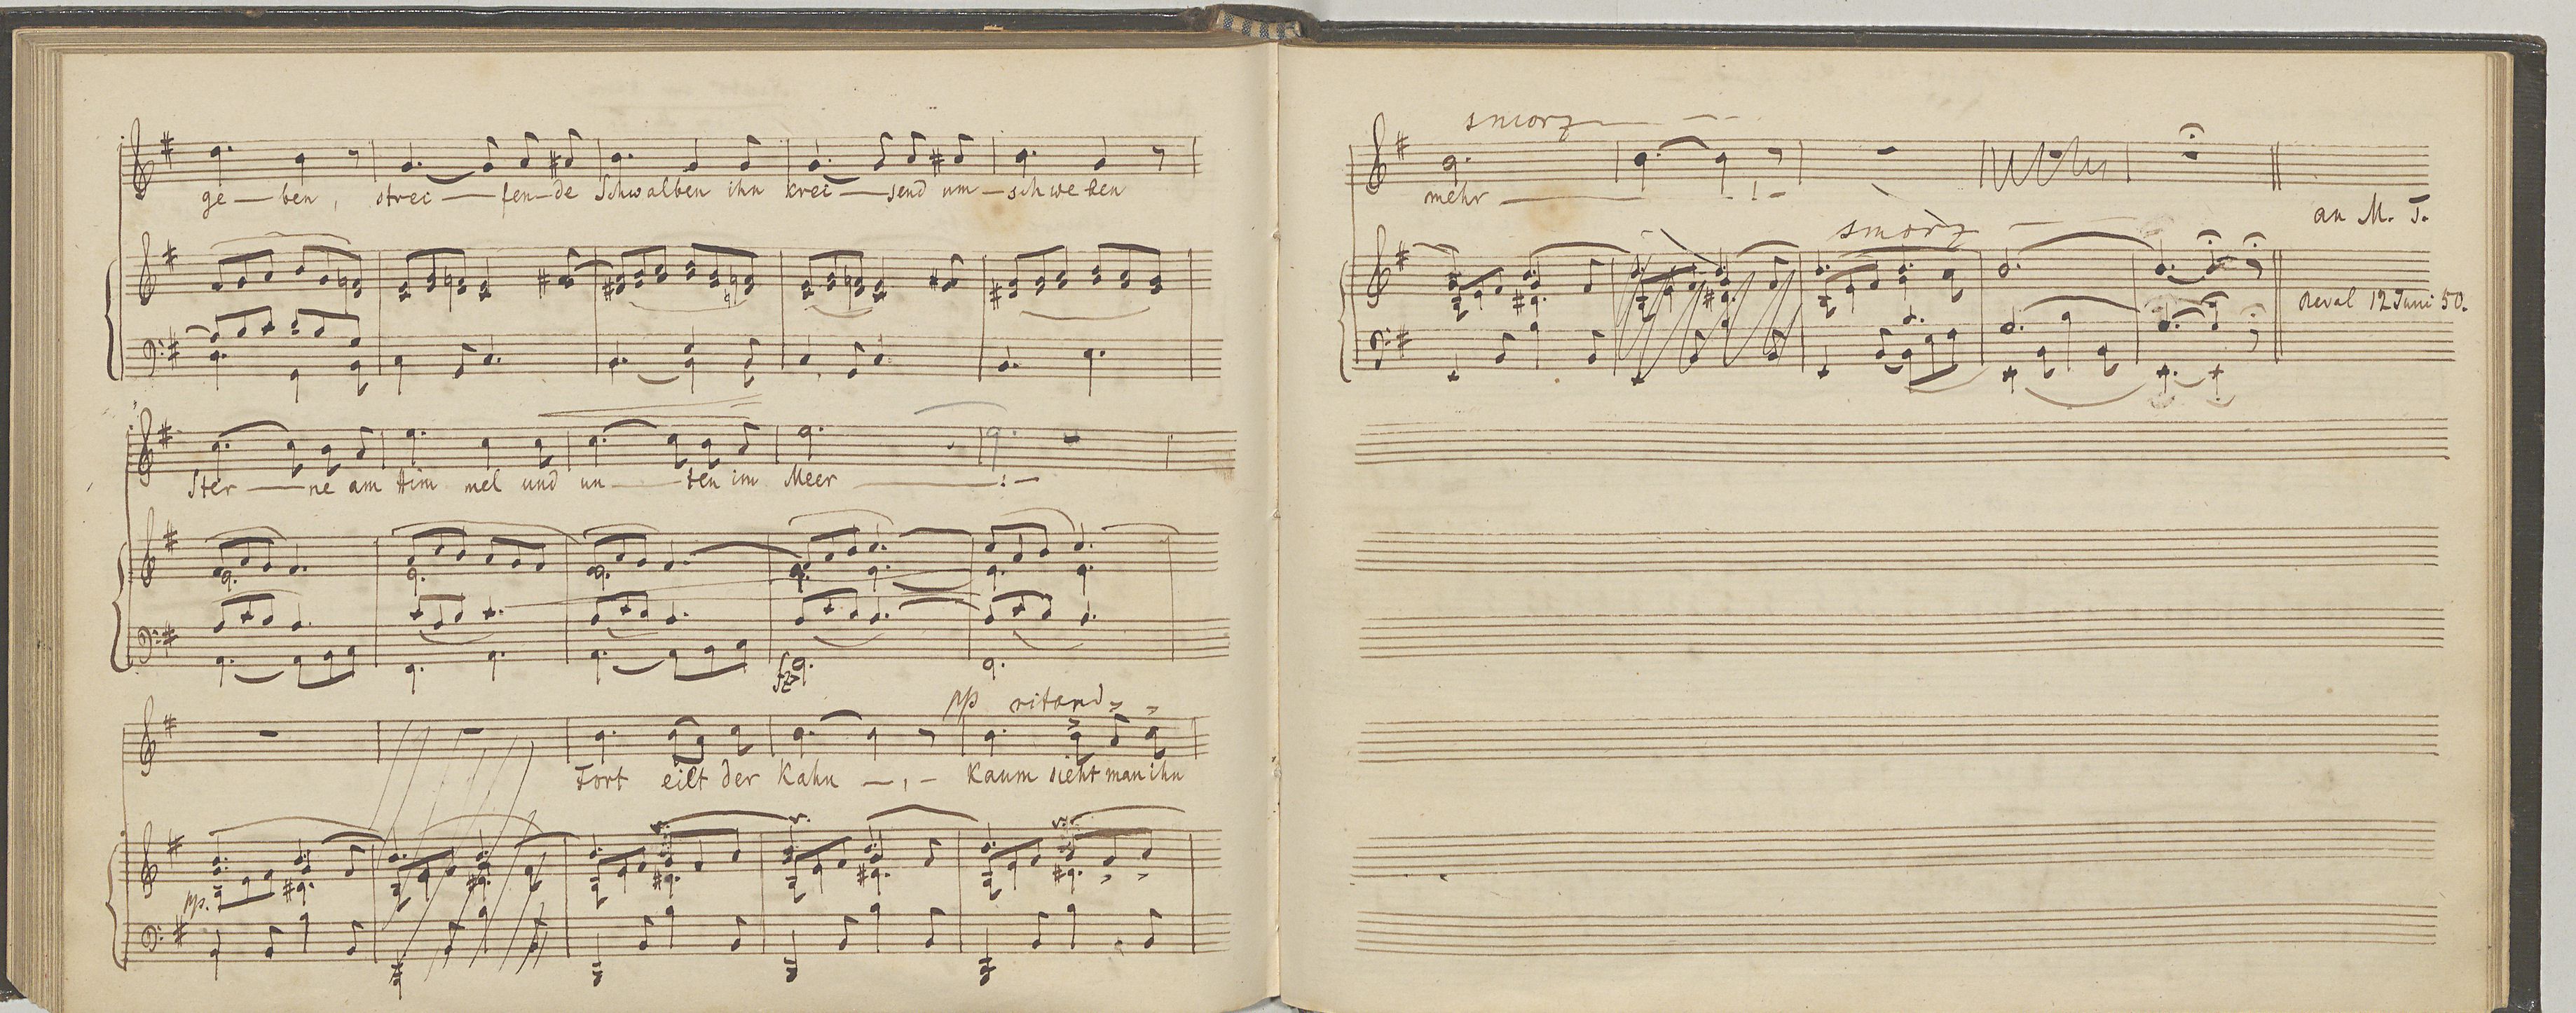 ge — ben, strei — fen — de Schwalben ihn krei — send um — schweben
Ster — ne am Him mel und un — ten im Meer — ! —
fz
pp ritard
Fort eilt der Kahn — , — Kaum sieht man ihn
pp.
smorz
mehr — ! —
an M. T.
smorz
Reval 12 Juni 50.